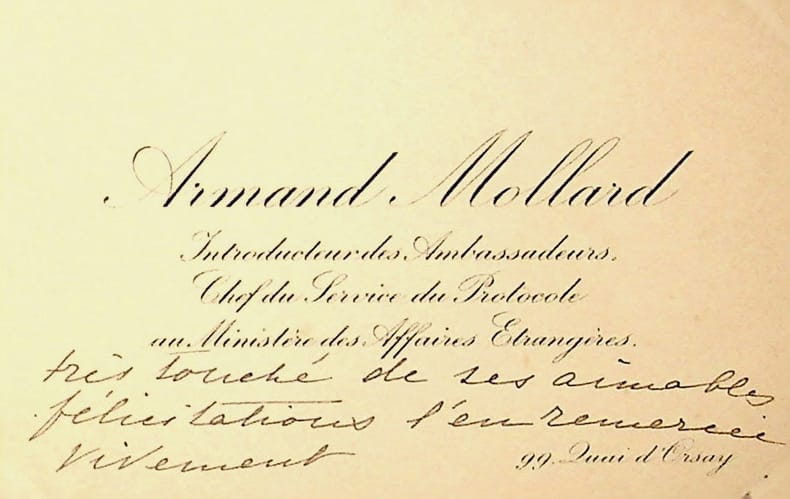 Armand Mollard
Introducteur des Ambassadeurs.
Chef du Service du Protocole
au Ministère des Affaires Etrangères.
très touché de ses aimables
félicitations l'en remercie
vivement
99. Quai d'Orsay